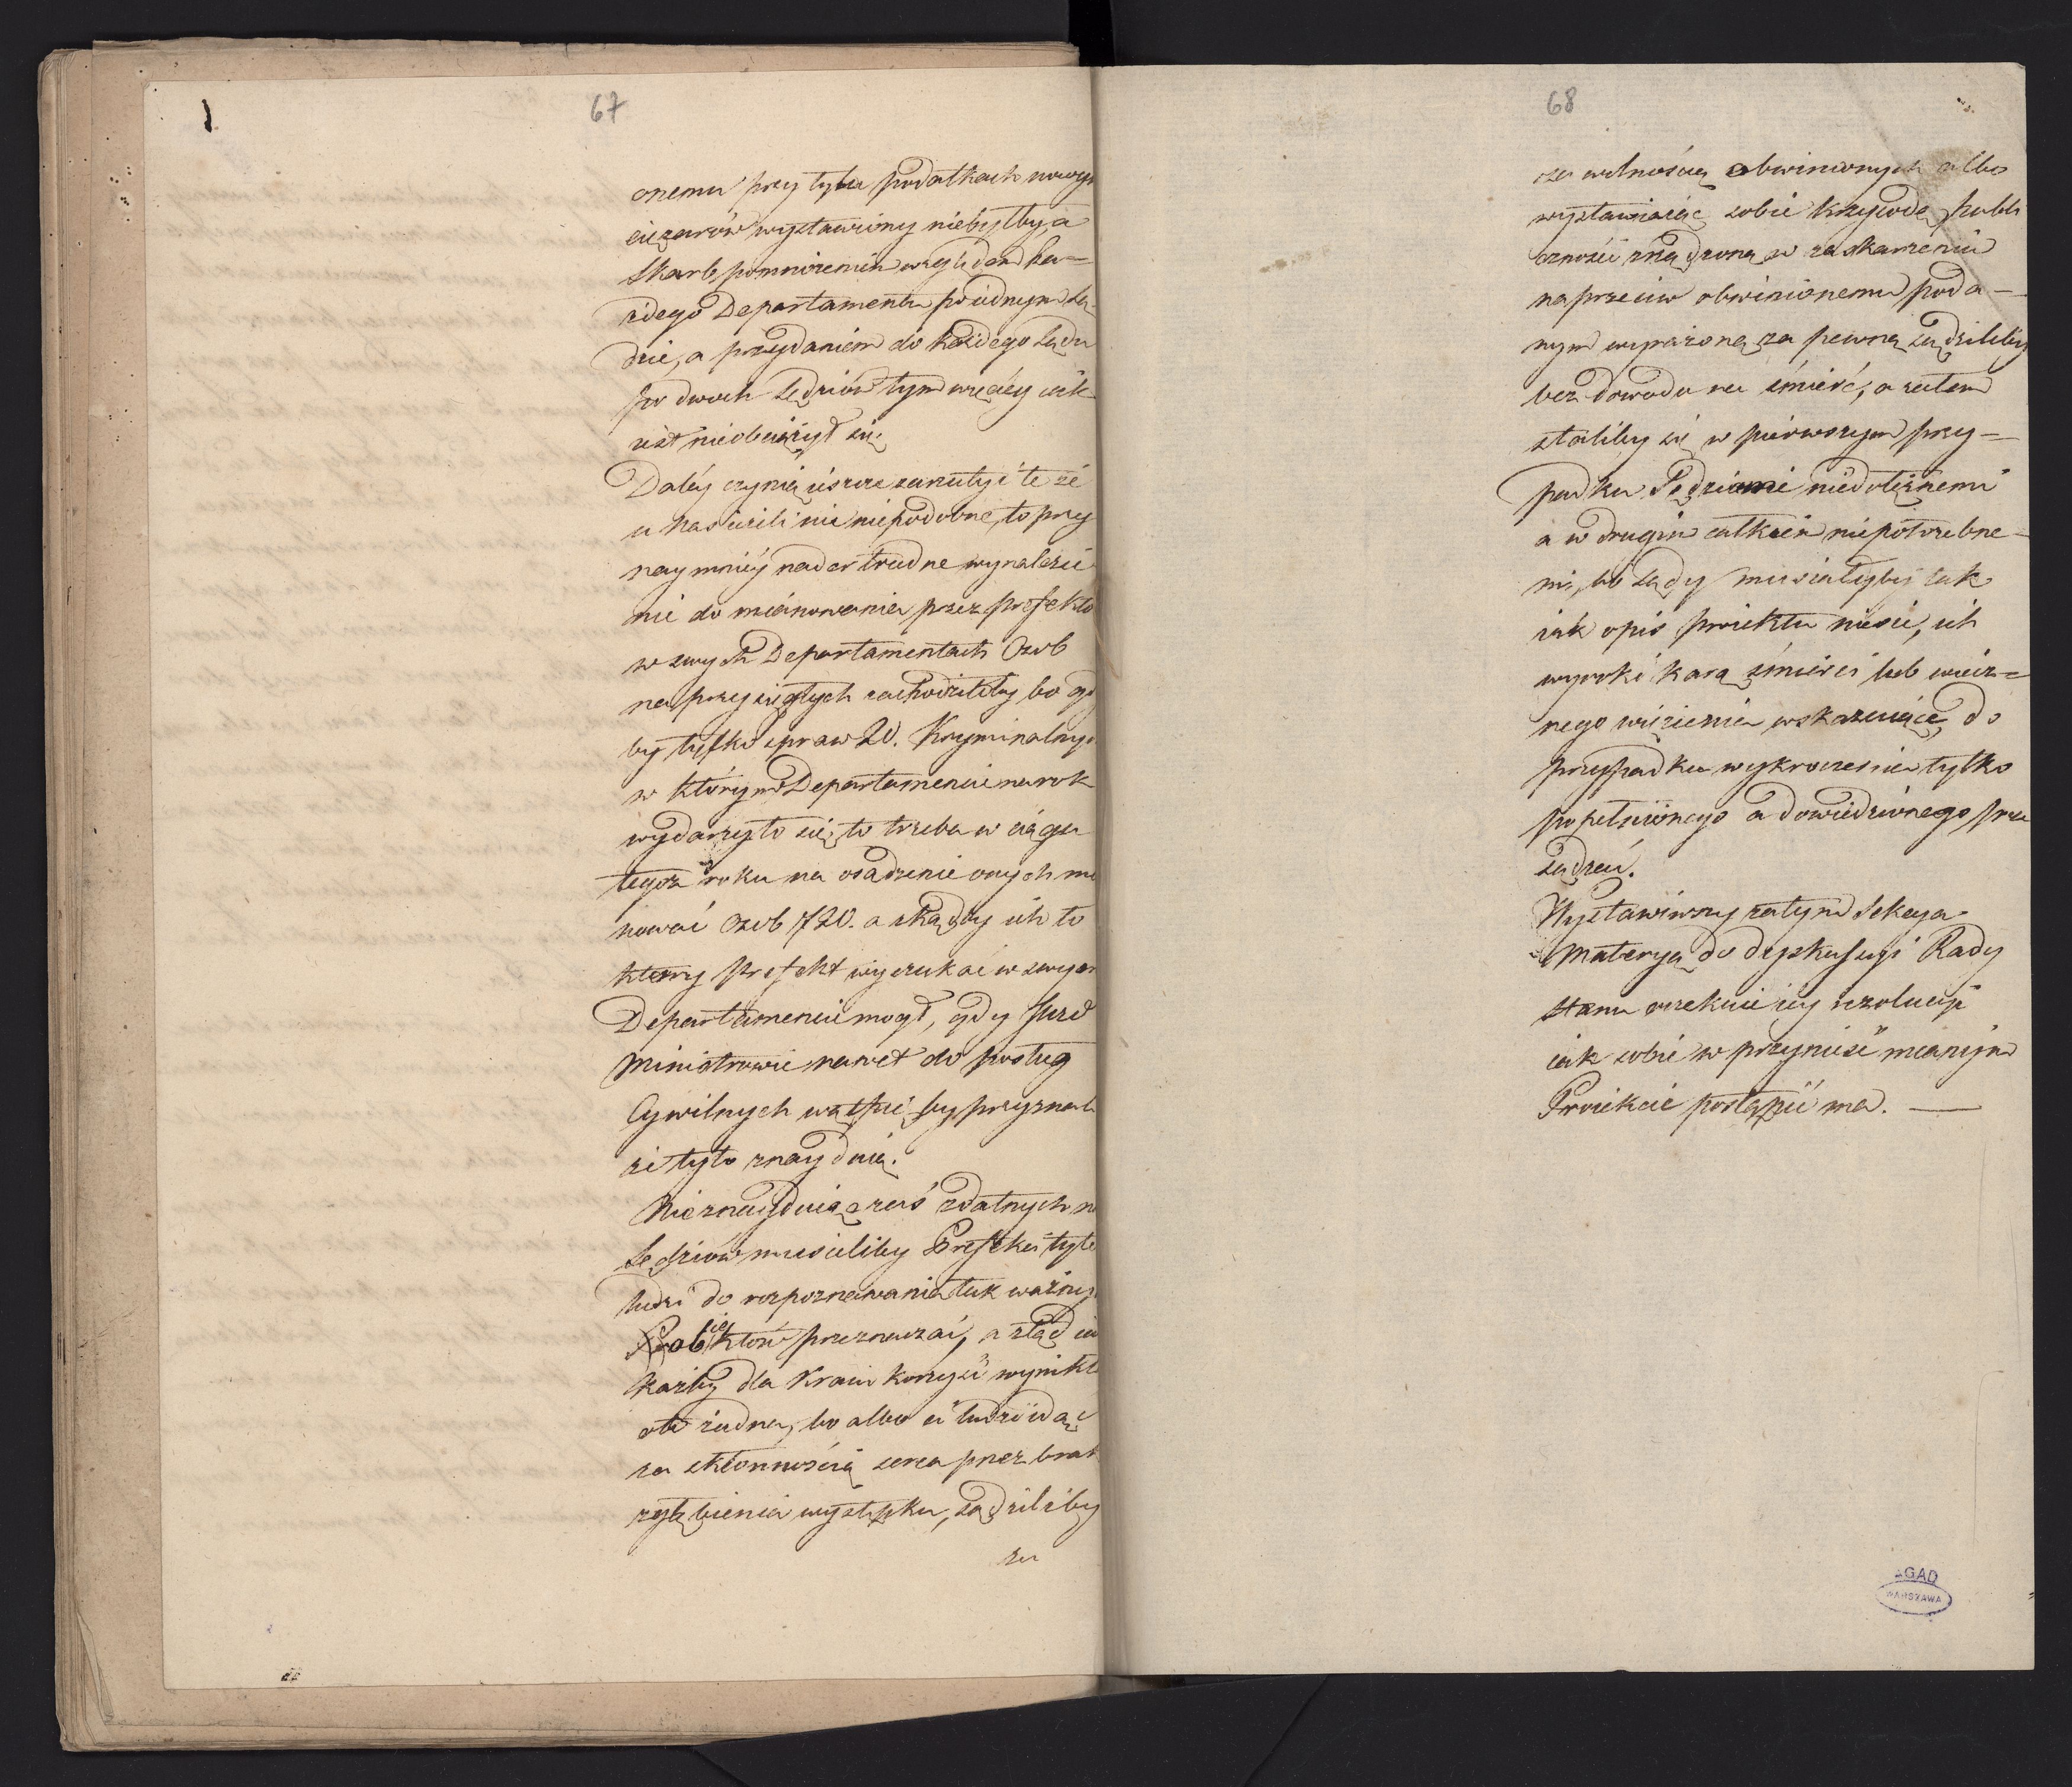 67
onemu przy tylu podatkach nowych
ciężarów wystawiony niebyłby, a
Skarb pomnożeniem względem ka=
żdego Departamentu po iednym Są=
dzie, a przydaniem do każdego Sądu
po dwoch Sędziów tym więcey iak
iest nieobciążył się.
Daléy czynią ieszcze zarzuty i te że
u nas ieżeli nie niepodobne, to przy
naymniéy nader trudne wynalezie
nie do mianowania przez prefektów
w swych Departamentach Osob
na przysięgłych zachodziłoby bo gdy
by tylko spraw 20. Kryminalnych
w którym Departamencie na rok
wydarzyło się, to trzeba w ciągu
tegoż roku na osadzenie onych mia
nować Osob 720. a skądby ich to
ktory Prefekt wyszukać w swym
Departamencie mogł, gdy Pano
Ministrowie nawet do posług
Cywilnych wątpić by przyznali
że tyle znaydzie.
Nieznayduiąc zaś zdatnych na
Sędziów musieliby Prefekci tyle
ludzi do rozpoznawania tak ważnych
Obiektów przeznaczać, a ztąd ia
każby dla Kraiu korzyść wynikła
oto żadna, bo albo ci ludzie idąc
za skłonnością serca przez brak
zgłębienia występku, sądziliby
za
68
za wolnością obwinionych albo
wystawiaiąc sobie krzywdę publi
czności zrządzoną w zaskarżeniu
naprzeciw obwinionemu poda=
nym wyrażoną za pewną sądziliby
bez dowodu na śmierć, a zatem
staliby się w pierwszym przy=
padku Sędziami niedołężnemi
a w drugim całkiem niepotrzebne=
mi, bo Sądy musiałyby tak
iak opis proiektu niesie, ich
wyroki karą śmierci lub wiecz=
nego więzienia wskazuiące, do
przypadku wykroczenia tylko
popełnionego a dowiedzionego przy
sądzać.
Wystawiwszy zatym Sekcya
Materyą do dyskussyi Rady
Stanu oczekuie iey rezolucyi
iak sobie w przynieść mianym
Proiekcie postąpić ma. —
AGAD
WARSZAWA